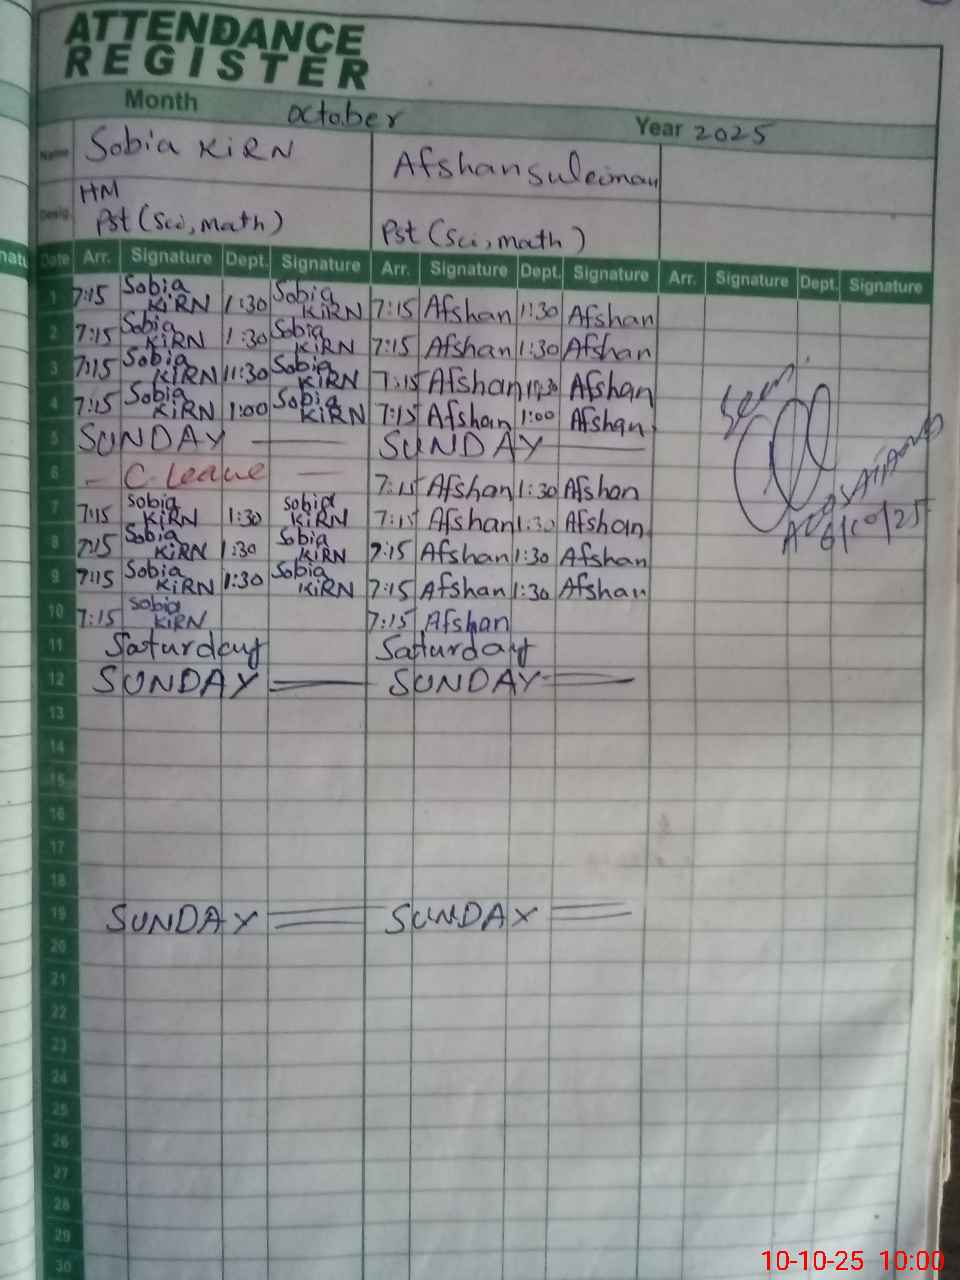 ATTENDANCE
REGISTER
Month October Year 2025
Name Sobia KiRN Afshan Suleiman
HM
Desig. Pst (Sci, math) Pst (Sci, math)
Date Arr. Signature Dept. Signature Arr. Signature Dept. Signature Arr. Signature Dept. Signature
1 7:15 Sobia KiRN 1:30 Sobia KiRN 7:15 Afshan 1:30 Afshan
2 7:15 Sobia KiRN 1:30 Sobia KiRN 7:15 Afshan 1:30 Afshan
3 7:15 Sobia KiRN 11:30 Sobia KiRN 7:15 Afshan Afshan
4 7:15 Sobia KiRN 1:00 Sobia KiRN 7:15 Afshan 1:00 Afshan
5 SUNDAY SUNDAY
6 C. Leave 7:15 Afshan 1:30 Afshan
7 7:15 Sobia KiRN 1:30 Sobia KiRN 7:15 Afshan 1:30 Afshan
8 7:15 Sobia KiRN 1:30 Sobia KiRN 7:15 Afshan 1:30 Afshan
9 7:15 Sobia KiRN 1:30 Sobia KiRN 7:15 Afshan 1:30 Afshan
10 7:15 Sobia KiRN 7:15 Afshan
11 Saturday Saturday
12 SUNDAY SUNDAY
13
14
15
16
17
18
19 SUNDAY SUNDAY
20
21
22
23
24
25
26
27
28
29
30
Seen
6/10/25
10-10-25 10:00